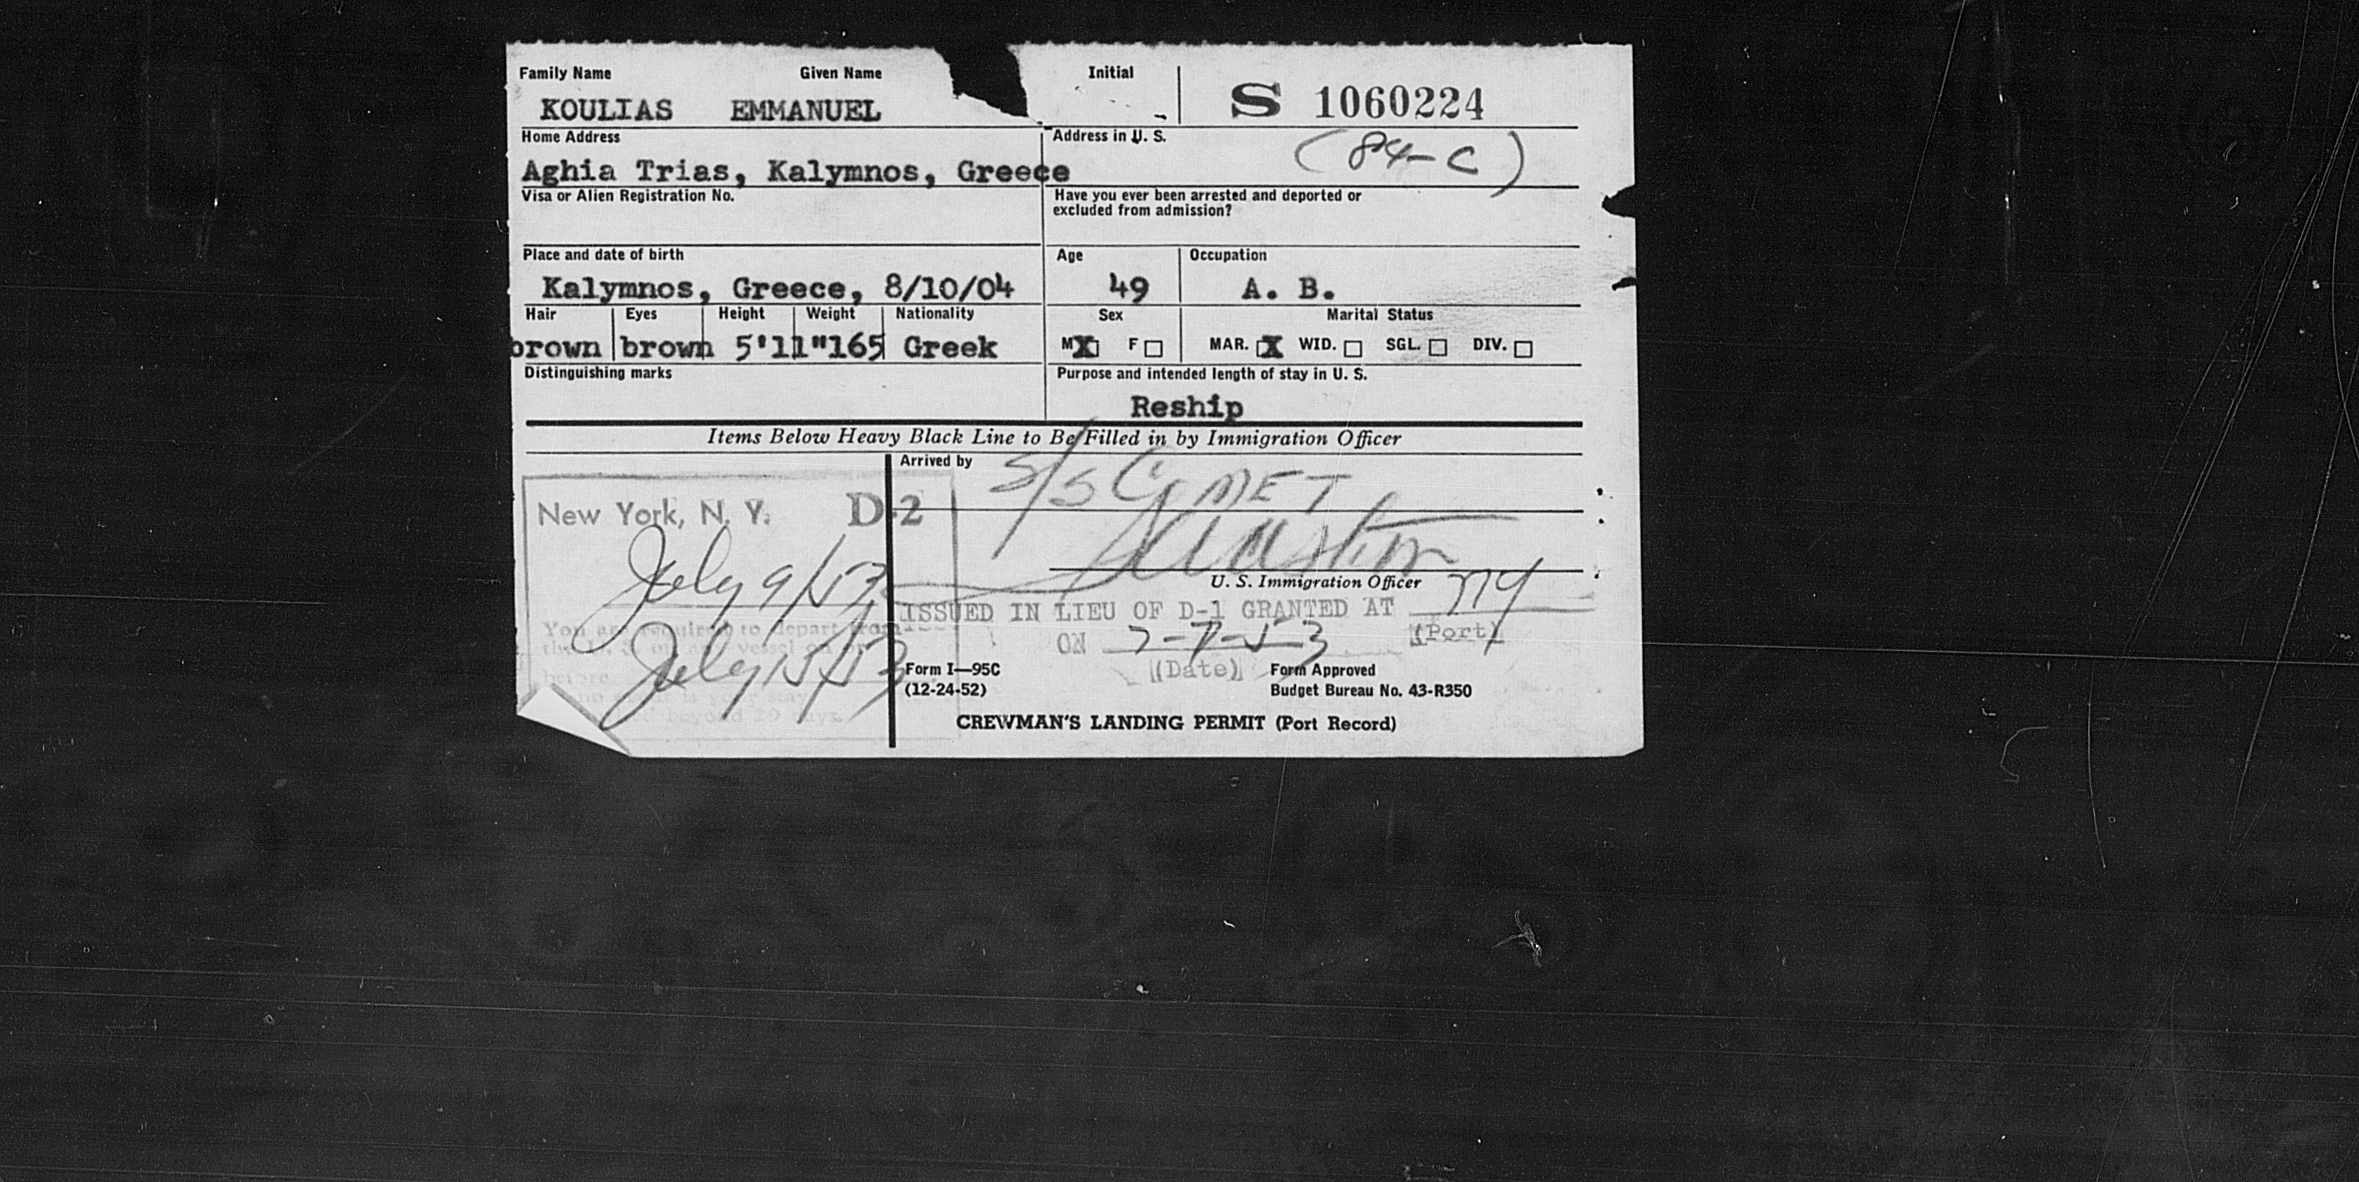 Family Name Given Name Initial
KOULIAS EMMANUEL - S 1060224
Home Address Address in U. S.
Aghia Trias, Kalymnos, Greece (84-C)
Visa or Alien Registration No. Have you ever been arrested and deported or
excluded from admission?
Place and date of birth Age Occupation
Kalymnos, Greece, 8/10/04 49 A. B.
Hair Eyes Height Weight Nationality Sex Marital Status
brown brown 5'11" 165 Greek M X F MAR. X WID. SGL. DIV.
Distinguishing marks Purpose and intended length of stay in U. S.
Reship
Items Below Heavy Black Line to Be Filled in by Immigration Officer
Arrived by S/S COMET
New York, N. Y. D-2
July 9/53
U. S. Immigration Officer
ISSUED IN LIEU OF D-1 GRANTED AT NY
You are required to depart from
ON 7-7-53 (Port)
July 15/53
Form I—95C (Date) Form Approved
(12-24-52) Budget Bureau No. 43-R350
beyond 29 days.
CREWMAN'S LANDING PERMIT (Port Record)